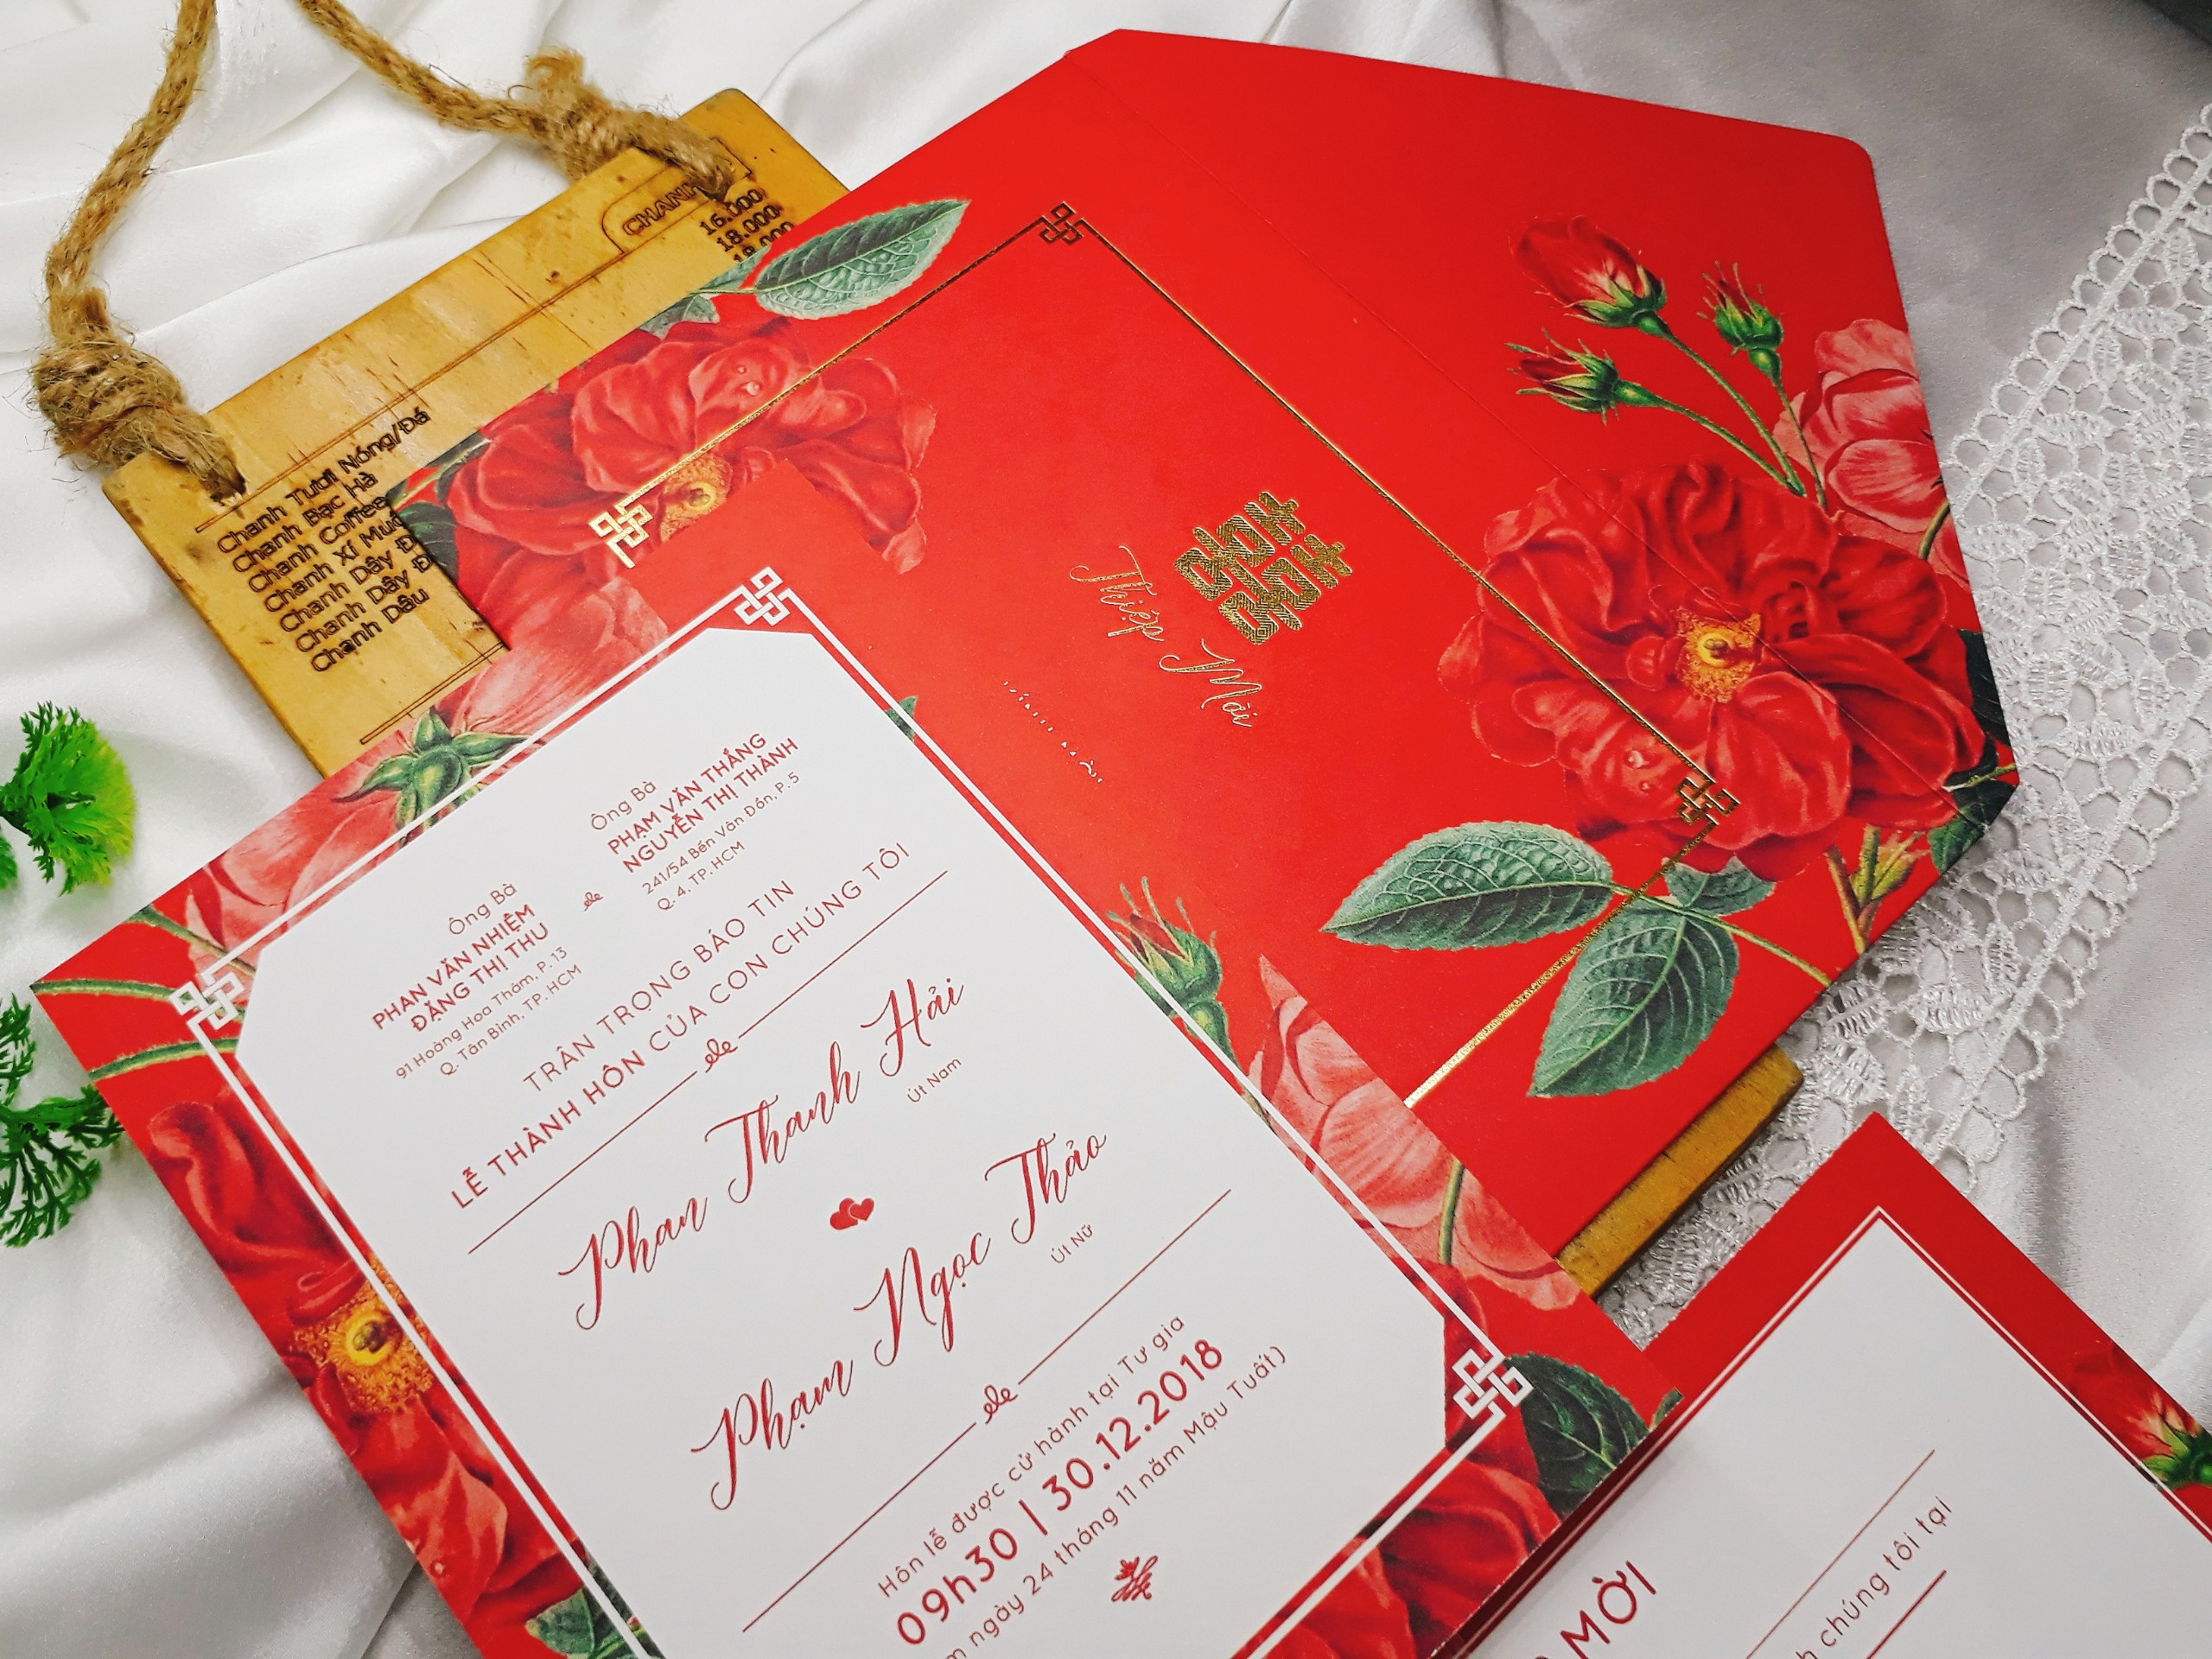 CHANH
16.000
18.000
18.000
Chanh Tươi Nóng/Đá
Chanh Bạc Hà
Chanh Coffee
Chanh Xí Muội
Chanh Dây
Chanh Dây
Chanh Dâu
囍
Thiệp Mời
Ông Bà
PHAN VĂN NHIỆM
ĐẶNG THỊ THU
91 Hoàng Hoa Thám, P. 13
Q. Tân Bình, TP. HCM
Ông Bà
PHẠM VĂN THẮNG
NGUYỄN THỊ THÀNH
241/54 Bến Vân Đồn, P. 5
Q. 4, TP. HCM
TRÂN TRỌNG BÁO TIN
LỄ THÀNH HÔN CỦA CON CHÚNG TÔI
Phan Thanh Hải
Út Nam
Phạm Ngọc Thảo
Út Nữ
Hôn lễ được cử hành tại Tư gia
09h30 | 30.12.2018
ngày 24 tháng 11 năm Mậu Tuất)
MỜI
chúng tôi tại